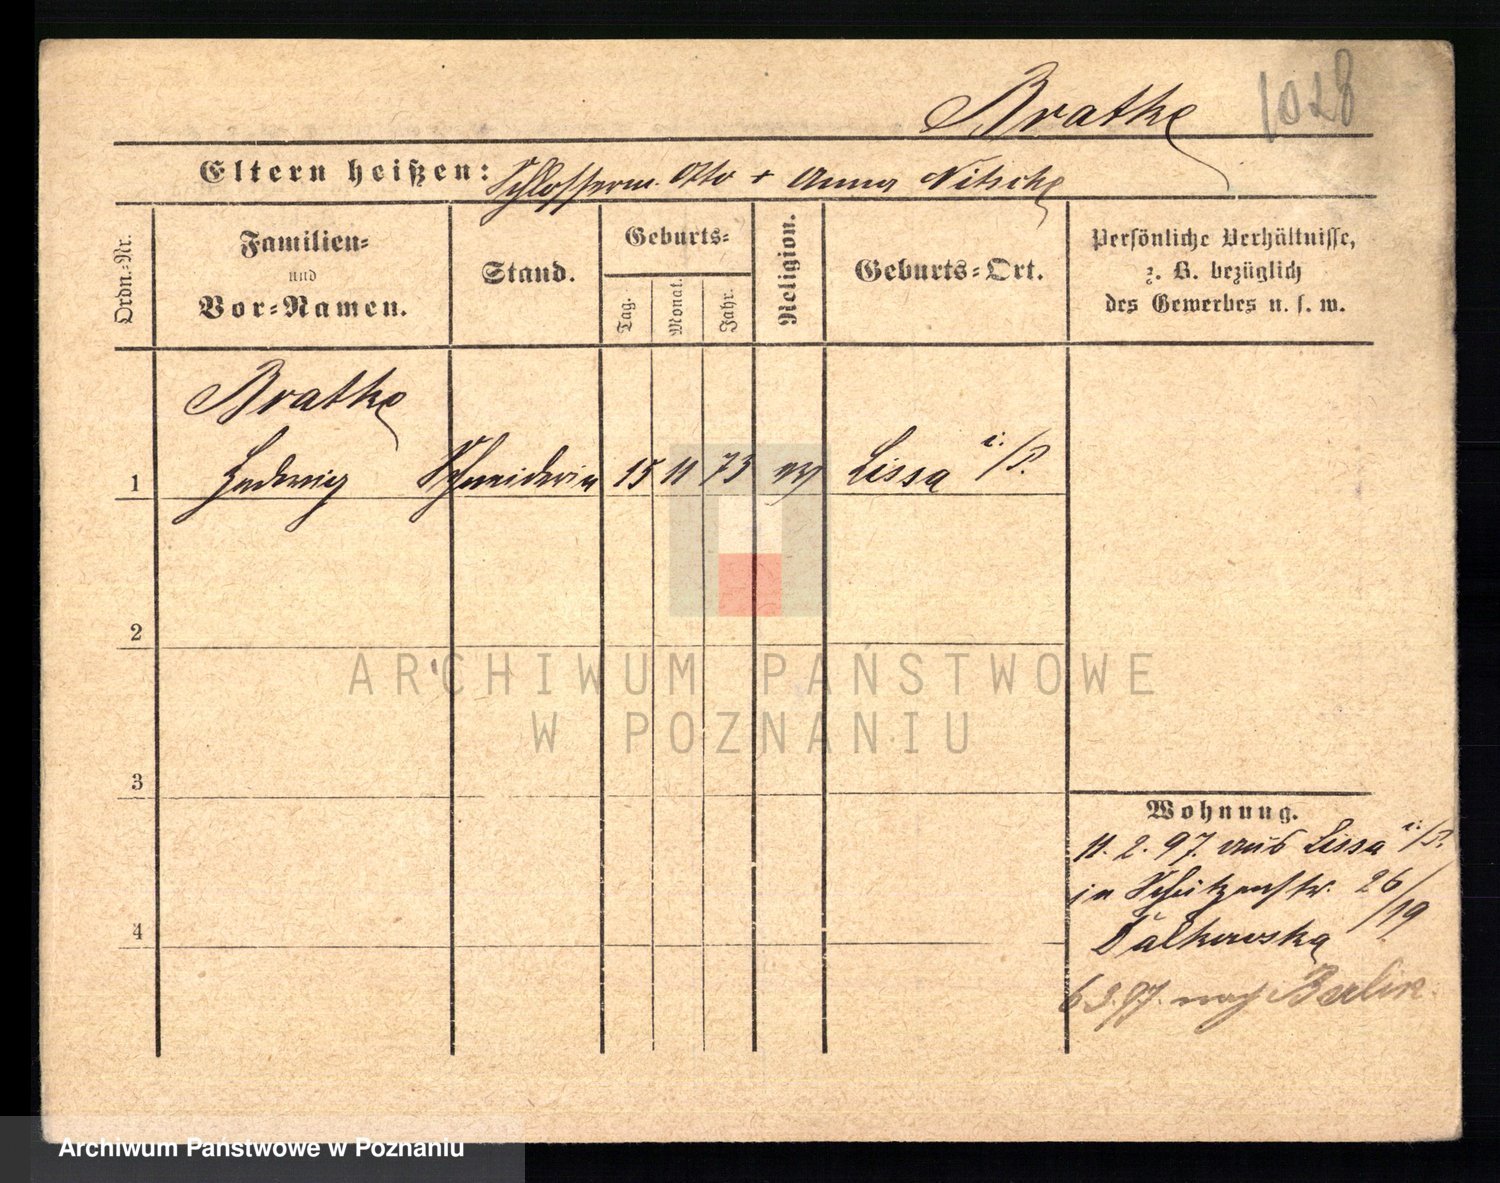 Bratke 1028
Eltern heißen: Schlosserm. Otto + Anna Nitsche
Ordn.-Nr.
Familien-
und
Vor-Namen.
Stand.
Geburts-
Tag.
Monat.
Jahr.
Religion.
Geburts-Ort.
Persönliche Verhältnisse,
z. B. bezüglich
des Gewerbes u. s. w.
Bratke
1 Hedwig Schneiderin 15 11 73 ev Lissa i./P.
2
ARCHIWUM PAŃSTWOWE
W POZNANIU
3
Wohnung.
11. 2. 97. aus Lissa i./P.
in Schützenstr. 26/19
4
6.3.97. nach Berlin.
Archiwum Państwowe w Poznaniu